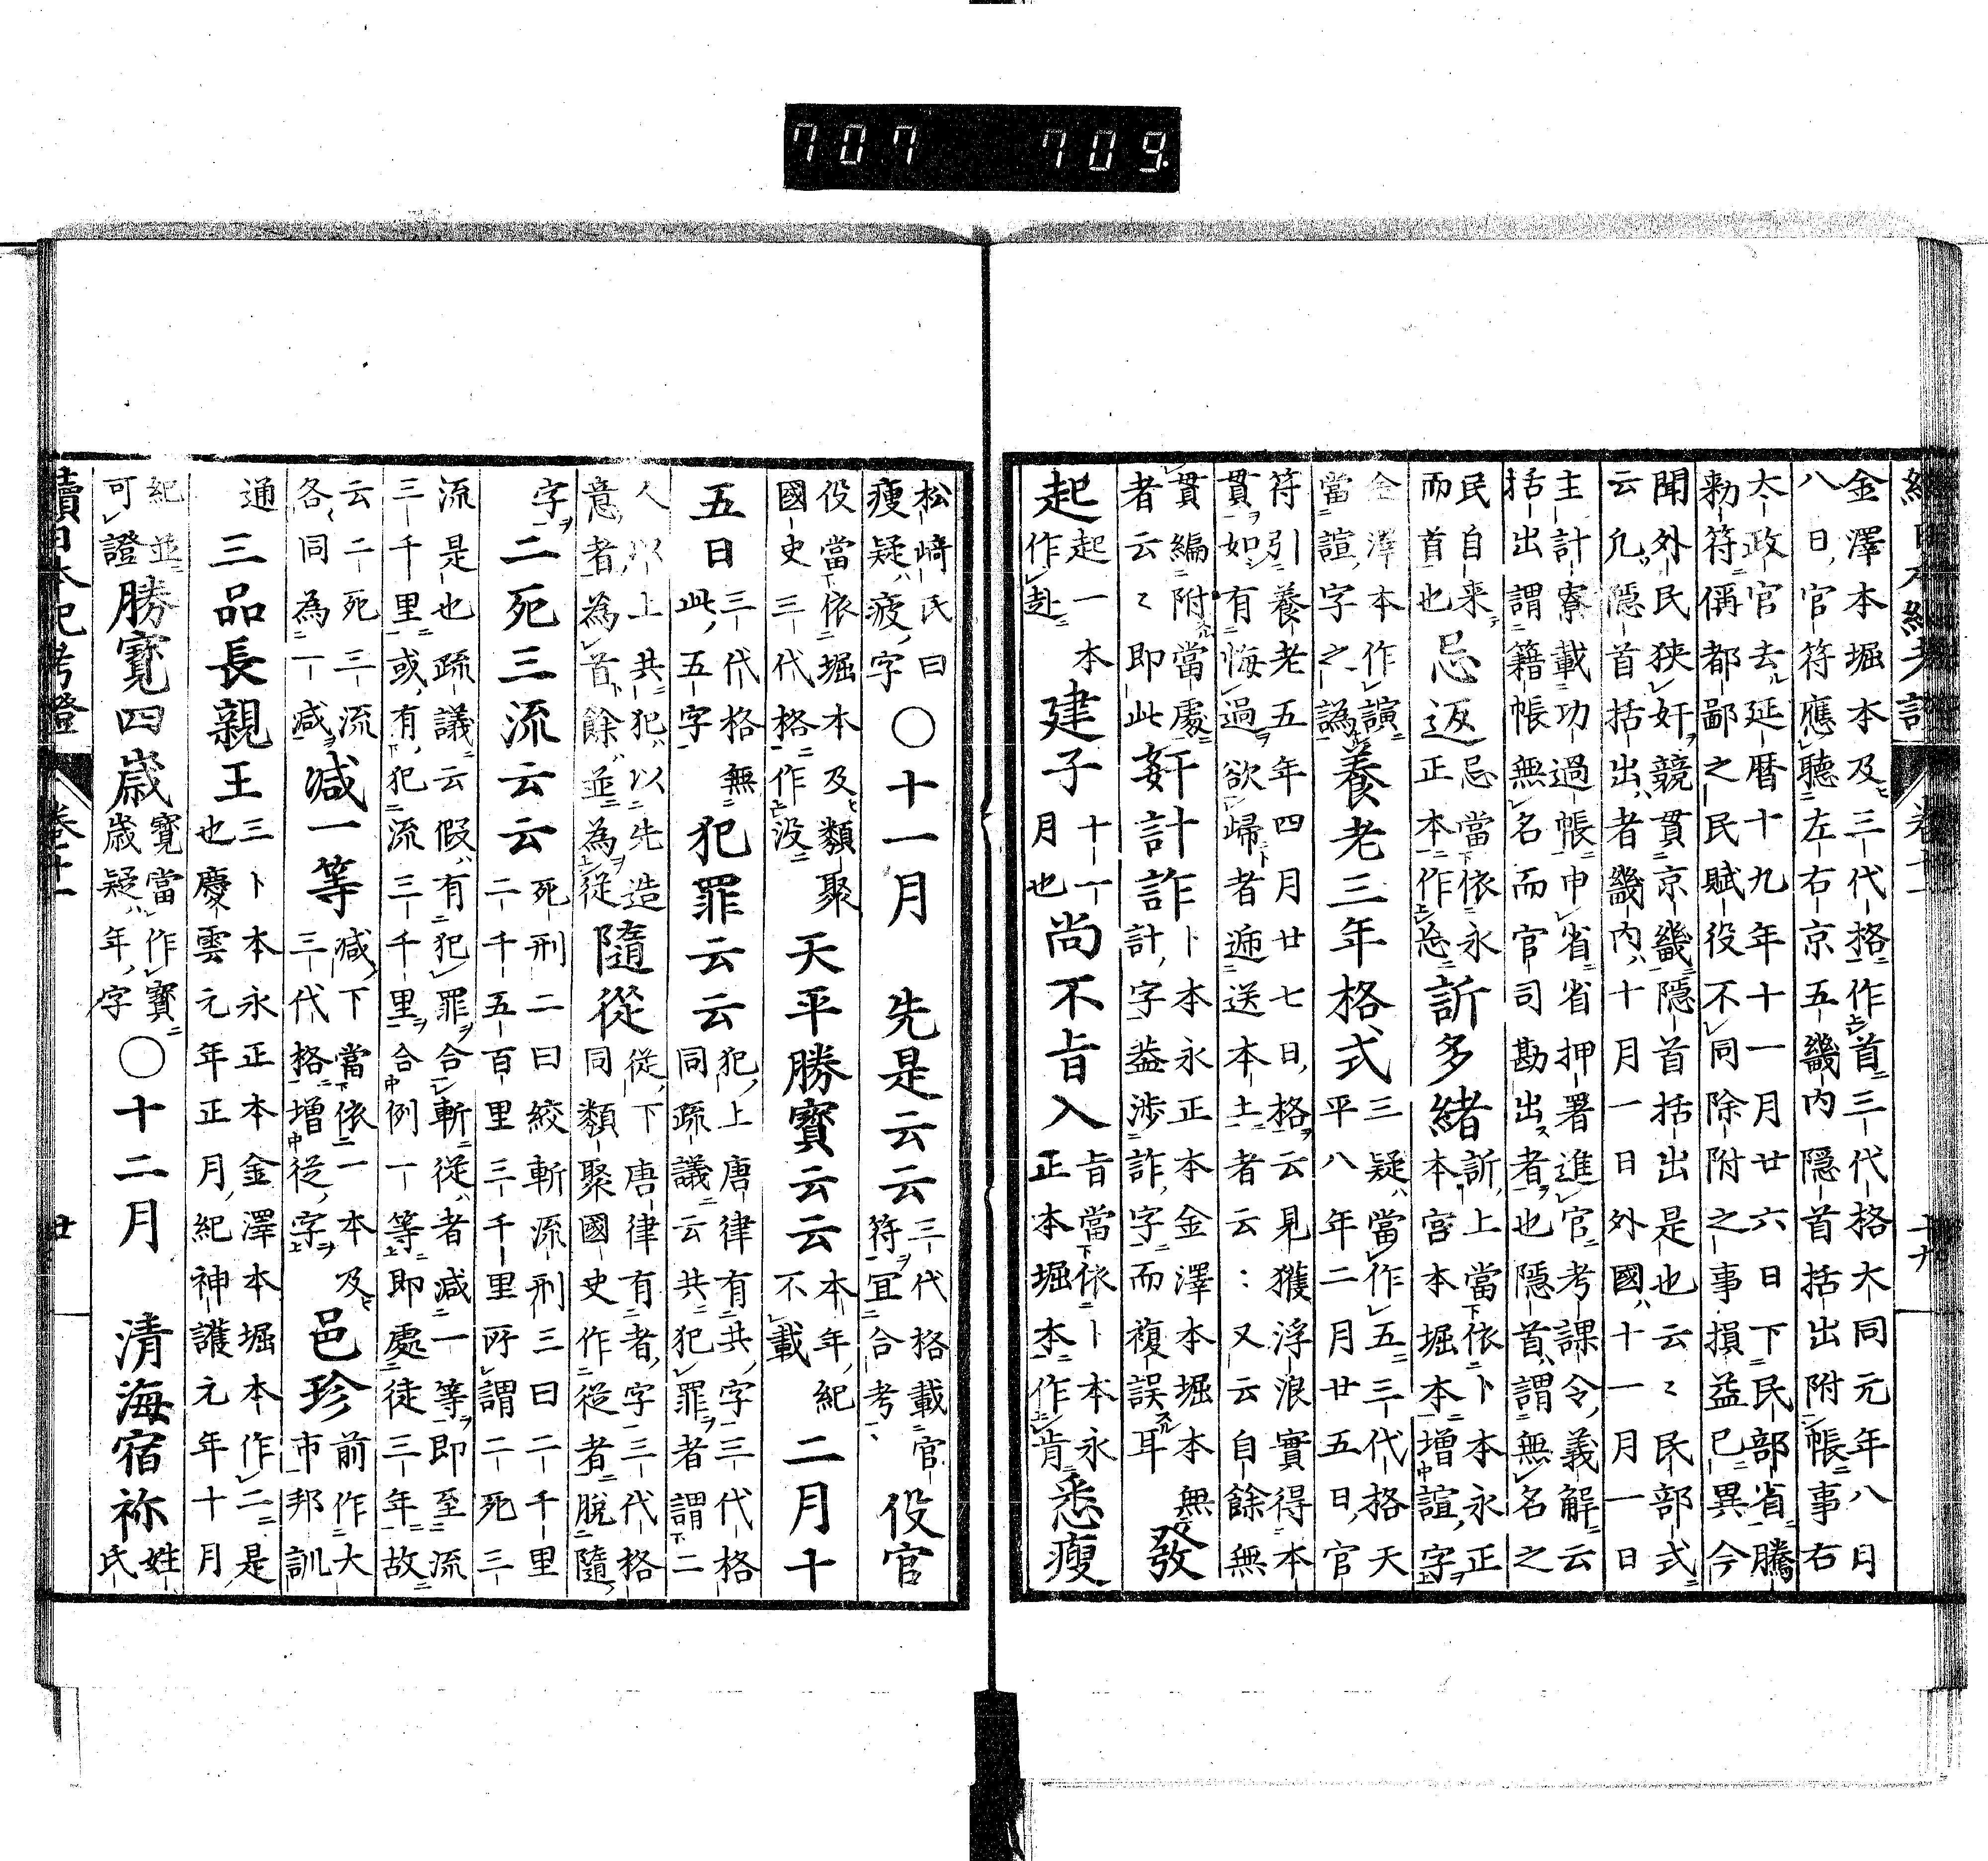 707 709.
續日本紀考證 卷十一 十九
金澤本堀本及三代格作首三代格大同元年八月
八日官符應聽左右京五畿內隱首括出附帳事右
太政官去延曆十九年十一月廿六日下民部省騰
勅符偁都鄙之民賦役不同除附之事損益已異今
聞外民狹奸競貫京畿隱首括出是也云〻民部式
云凡隱首括出者畿內十月一日外國十一月一日
主計寮載功過帳申省省押署進官考課令義解云
括出謂籍帳無名而官司勘出者也隱首謂無名之
民自來
而首也
忌返
忌當依永
正本作忘
訢多緒
訢上當依卜本永正
本宮本堀本增諠字
金澤本作諠
當諠字之譌
養老三年格式
三疑當作五三代格天
平八年二月廿五日官
符引養老五年四月廿七日格云見獲浮浪實得本
貫如有悔過欲歸者遞送本土者云〻又云自餘無
貫編附當處
者云〻即此
奸計詐
卜本永正本金澤本堀本無
計字葢涉詐字而複誤耳
發
起
起一本
作赴
建子
十一
月也
尚不肯入
肯當依卜本永
正本堀本作肯
悉瘦
松崎氏曰
瘦疑疲字
〇十一月 先是云云
三代格載官
符宜合考
役官
役當依堀本及類聚
國史三代格作沒
天平勝寶云云
本年紀
不載
二月十
五日
三代格無
此五字
犯罪云云
犯上唐律有共字三代格
同疏議云共犯罪者謂二
人以上共犯以先造
意者為首餘並為從
隨從
從下唐律有者字三代格
同類聚國史作從者脫隨
字
二死三流云云
死刑二曰絞斬流刑三曰二千里
二千五百里三千里所謂二死三
流是也疏議云假有犯罪合斬從者減一等即至流
三千里或有犯流三千里合例一等即處徒三年故
云二死三流
各同為一減
減一等
減下當依一本及
三代格增從字
邑珍
前作大
市邦訓
通
三品長親王
三卜本永正本金澤本堀本作二是
也慶雲元年正月紀神護元年十月
紀並
可證
勝寶四歲
寶當作寶
歲疑年字
〇十二月 清海宿祢
姓
氏
續日本紀考證 卷十一 廿